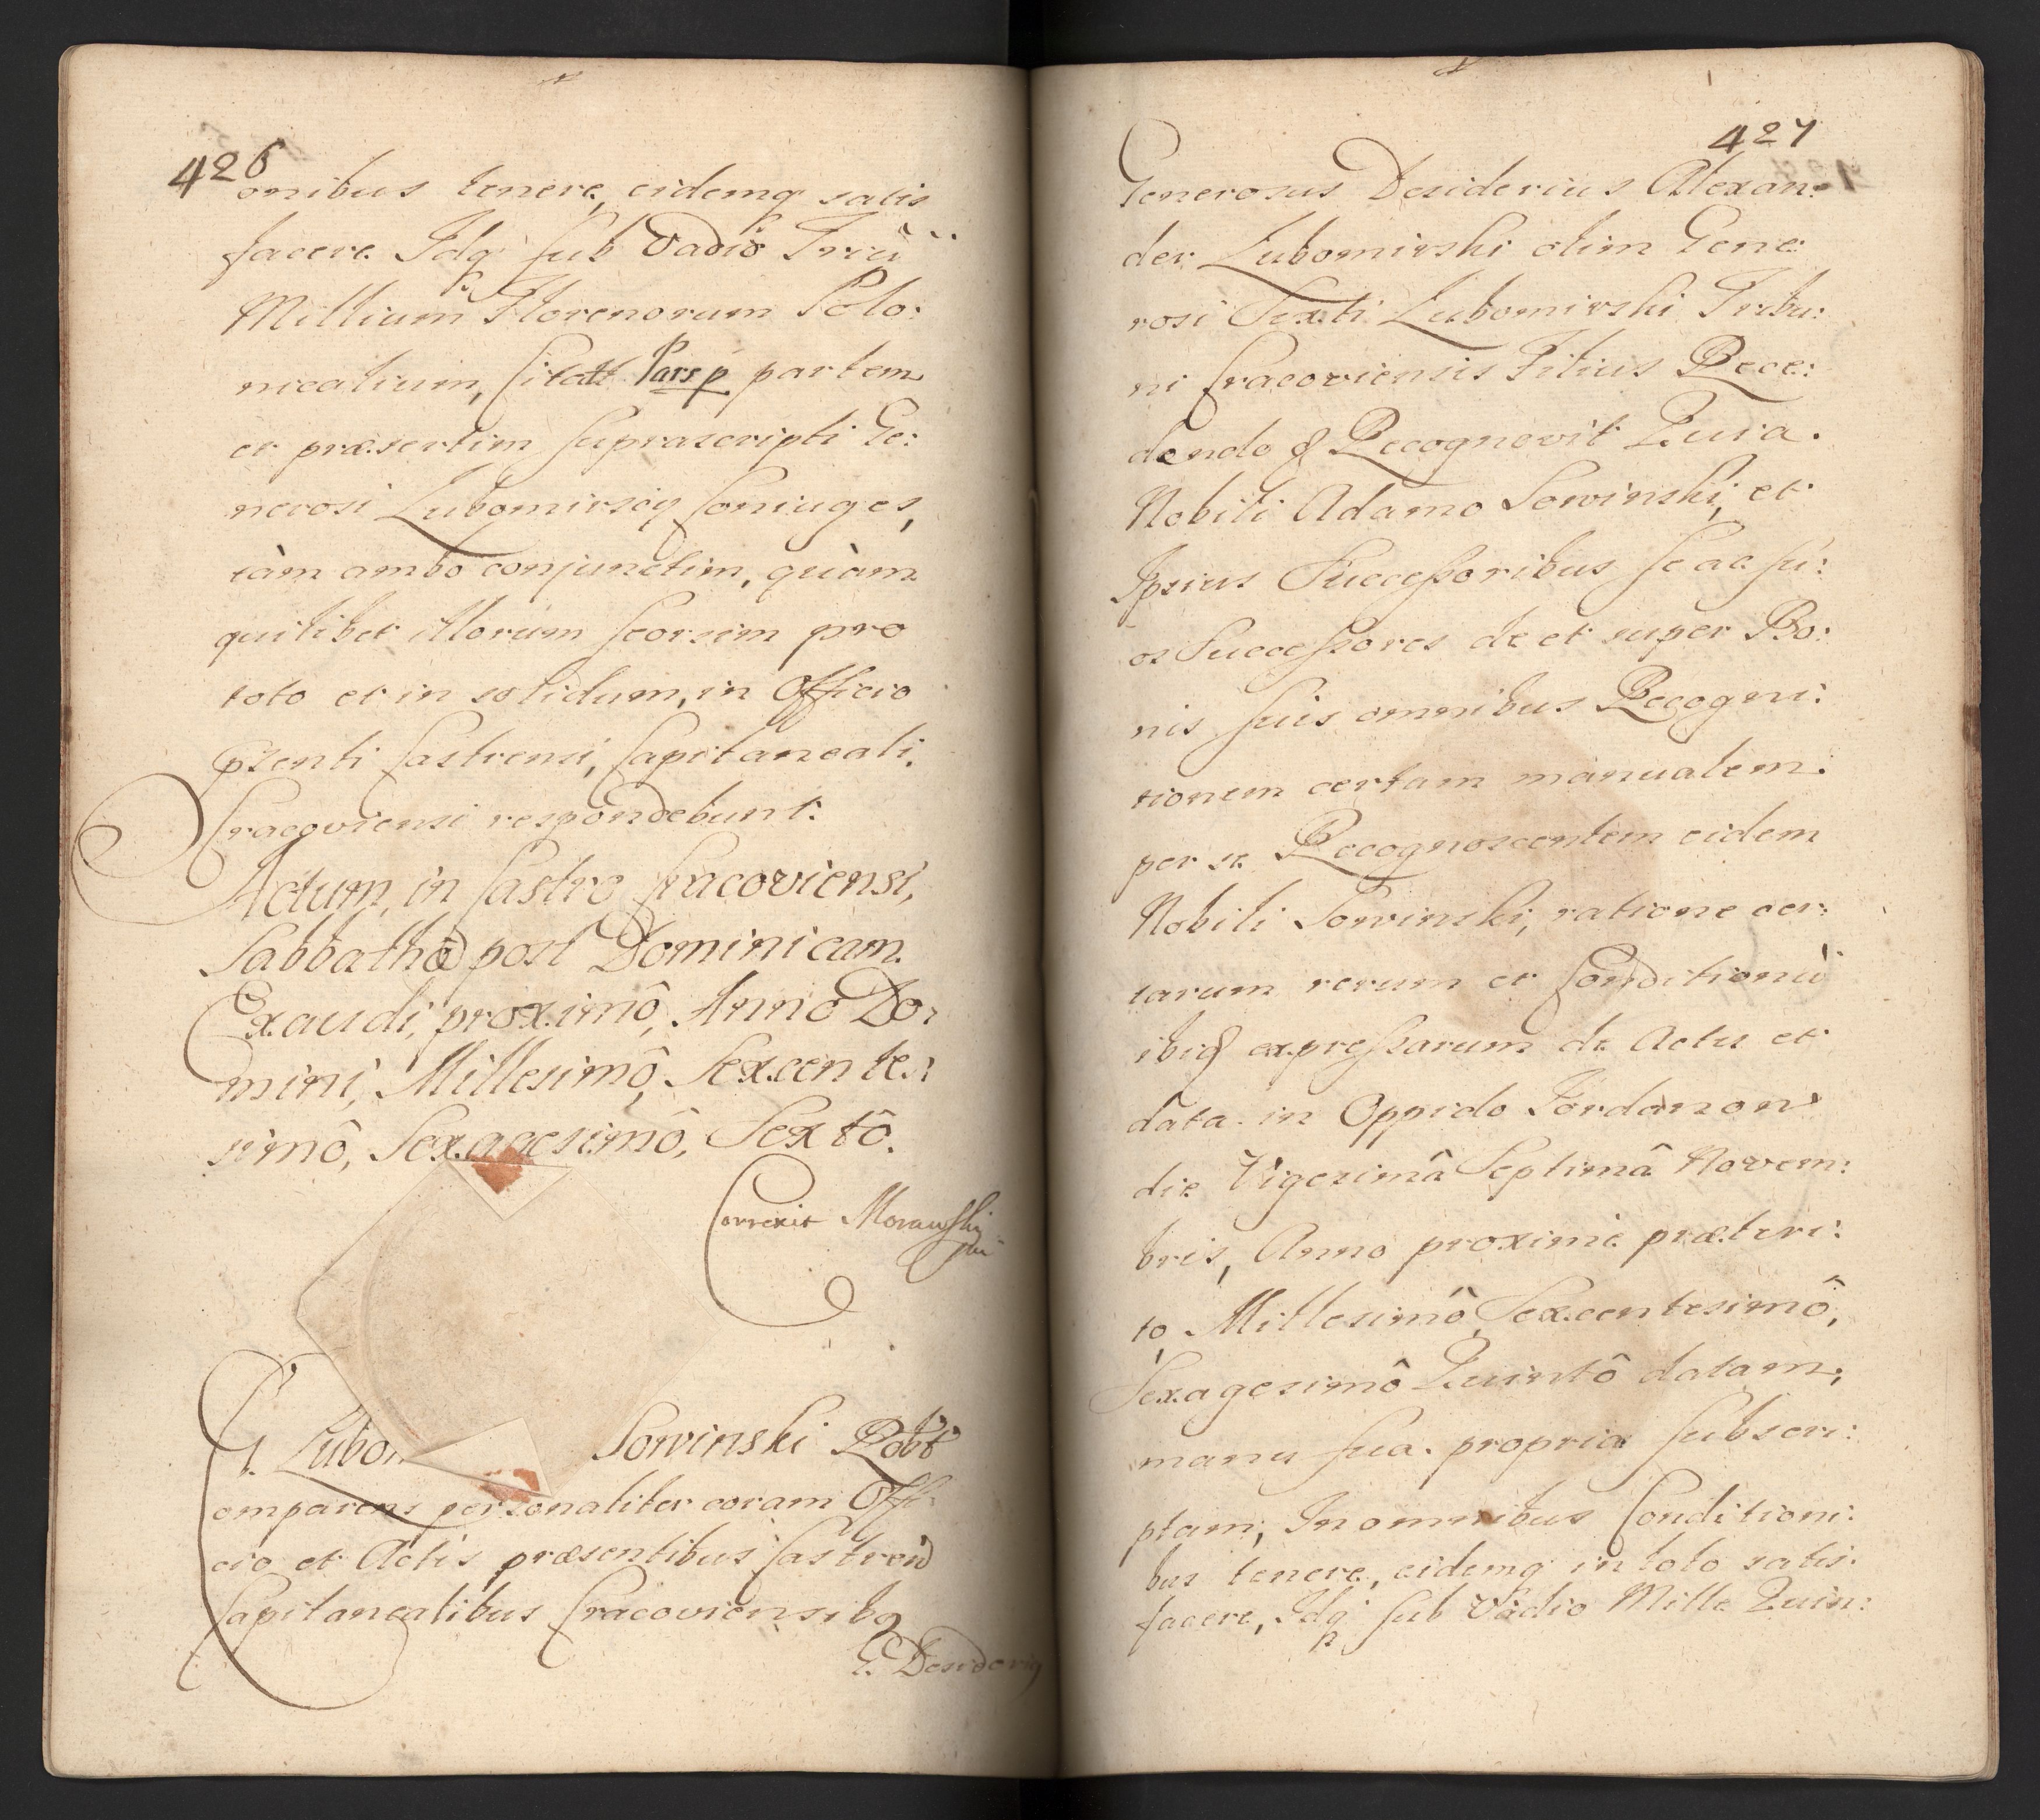 426
onibus tenere, eidemq satis
facere. Idq sub Vadio Triū
Millium Florenorum Polo:
nicalium, Citatt Pars p partem
et præsertim suprascripti Ge:
nerosi Lubomirscy Coniuges,
tàm ambo conjunctim, quàm
quilibet illorum seorsim pro
toto et in solidum, in Officio
pſenti Castrensi, Capitaneali,
Cracoviensi respondebunt.
Actum, in Castro Cracoviensi,
Sabbathō post Dominicam
Exaudi, proximô, Anno Do:
mini, Millesimô, Sexcente:
simô, Sexagesimô, Sextô.
Correxit Morawski
G. Lubom Sowinski Robt
Comparens personaliter coram Offi:
cio et Actis præsentibus Castren
Capitanealibus Cracoviensibq
G. Desideriq
427
Generosus Desiderius Alexan:
der Lubomirski olim Gene:
rosi Sexti Lubomirski Tribu:
ni Cracoviensis Filius Rece:
dendo & Recognovit Quia.
Nobili Adamo Sowinski, et
Ipsius Succeſsoribus se ac su:
os Succeſsores de et super Bo:
nis suis omnibus Recogni:
tionem certam manualem.
per se Recognoscentem eidem
Nobili Sowinski, ratione cer:
tarum rerum et Conditionū
ibiq expreſsarum de Actu et
data in Oppido Jordanon
die Vigesimâ Septimâ Novem:
bris, Anno proxime præteri:
to, Millesimô, Sexcentesimô,
Sexagesimô Quintô datam,
manu sua propria subscri:
ptam, In omnibus Conditioni:
bus tenere, eidemq in toto satis:
facere, Idq sub Vadio Mille Quin: